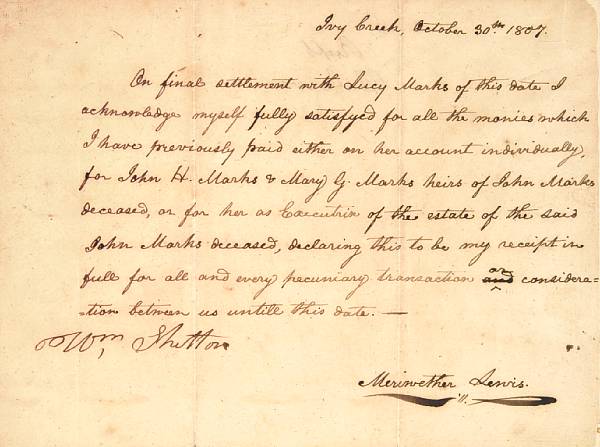 Ivy Creek, October 30th 1807.
On final settlement with Lucy Marks of this date I
acknowledge myself fully satisfyed for all the monies which
I have previously paid either on her account individually,
for John H. Marks & Mary G. Marks heirs of John Marks
deceased, or for her as Executrix of the estate of the said
John Marks deceased, declaring this to be my receipt in
full for all and every pecuniary transaction and or considera-
-tion between us untill this date. —
Wm Shelton
Meriwether Lewis.